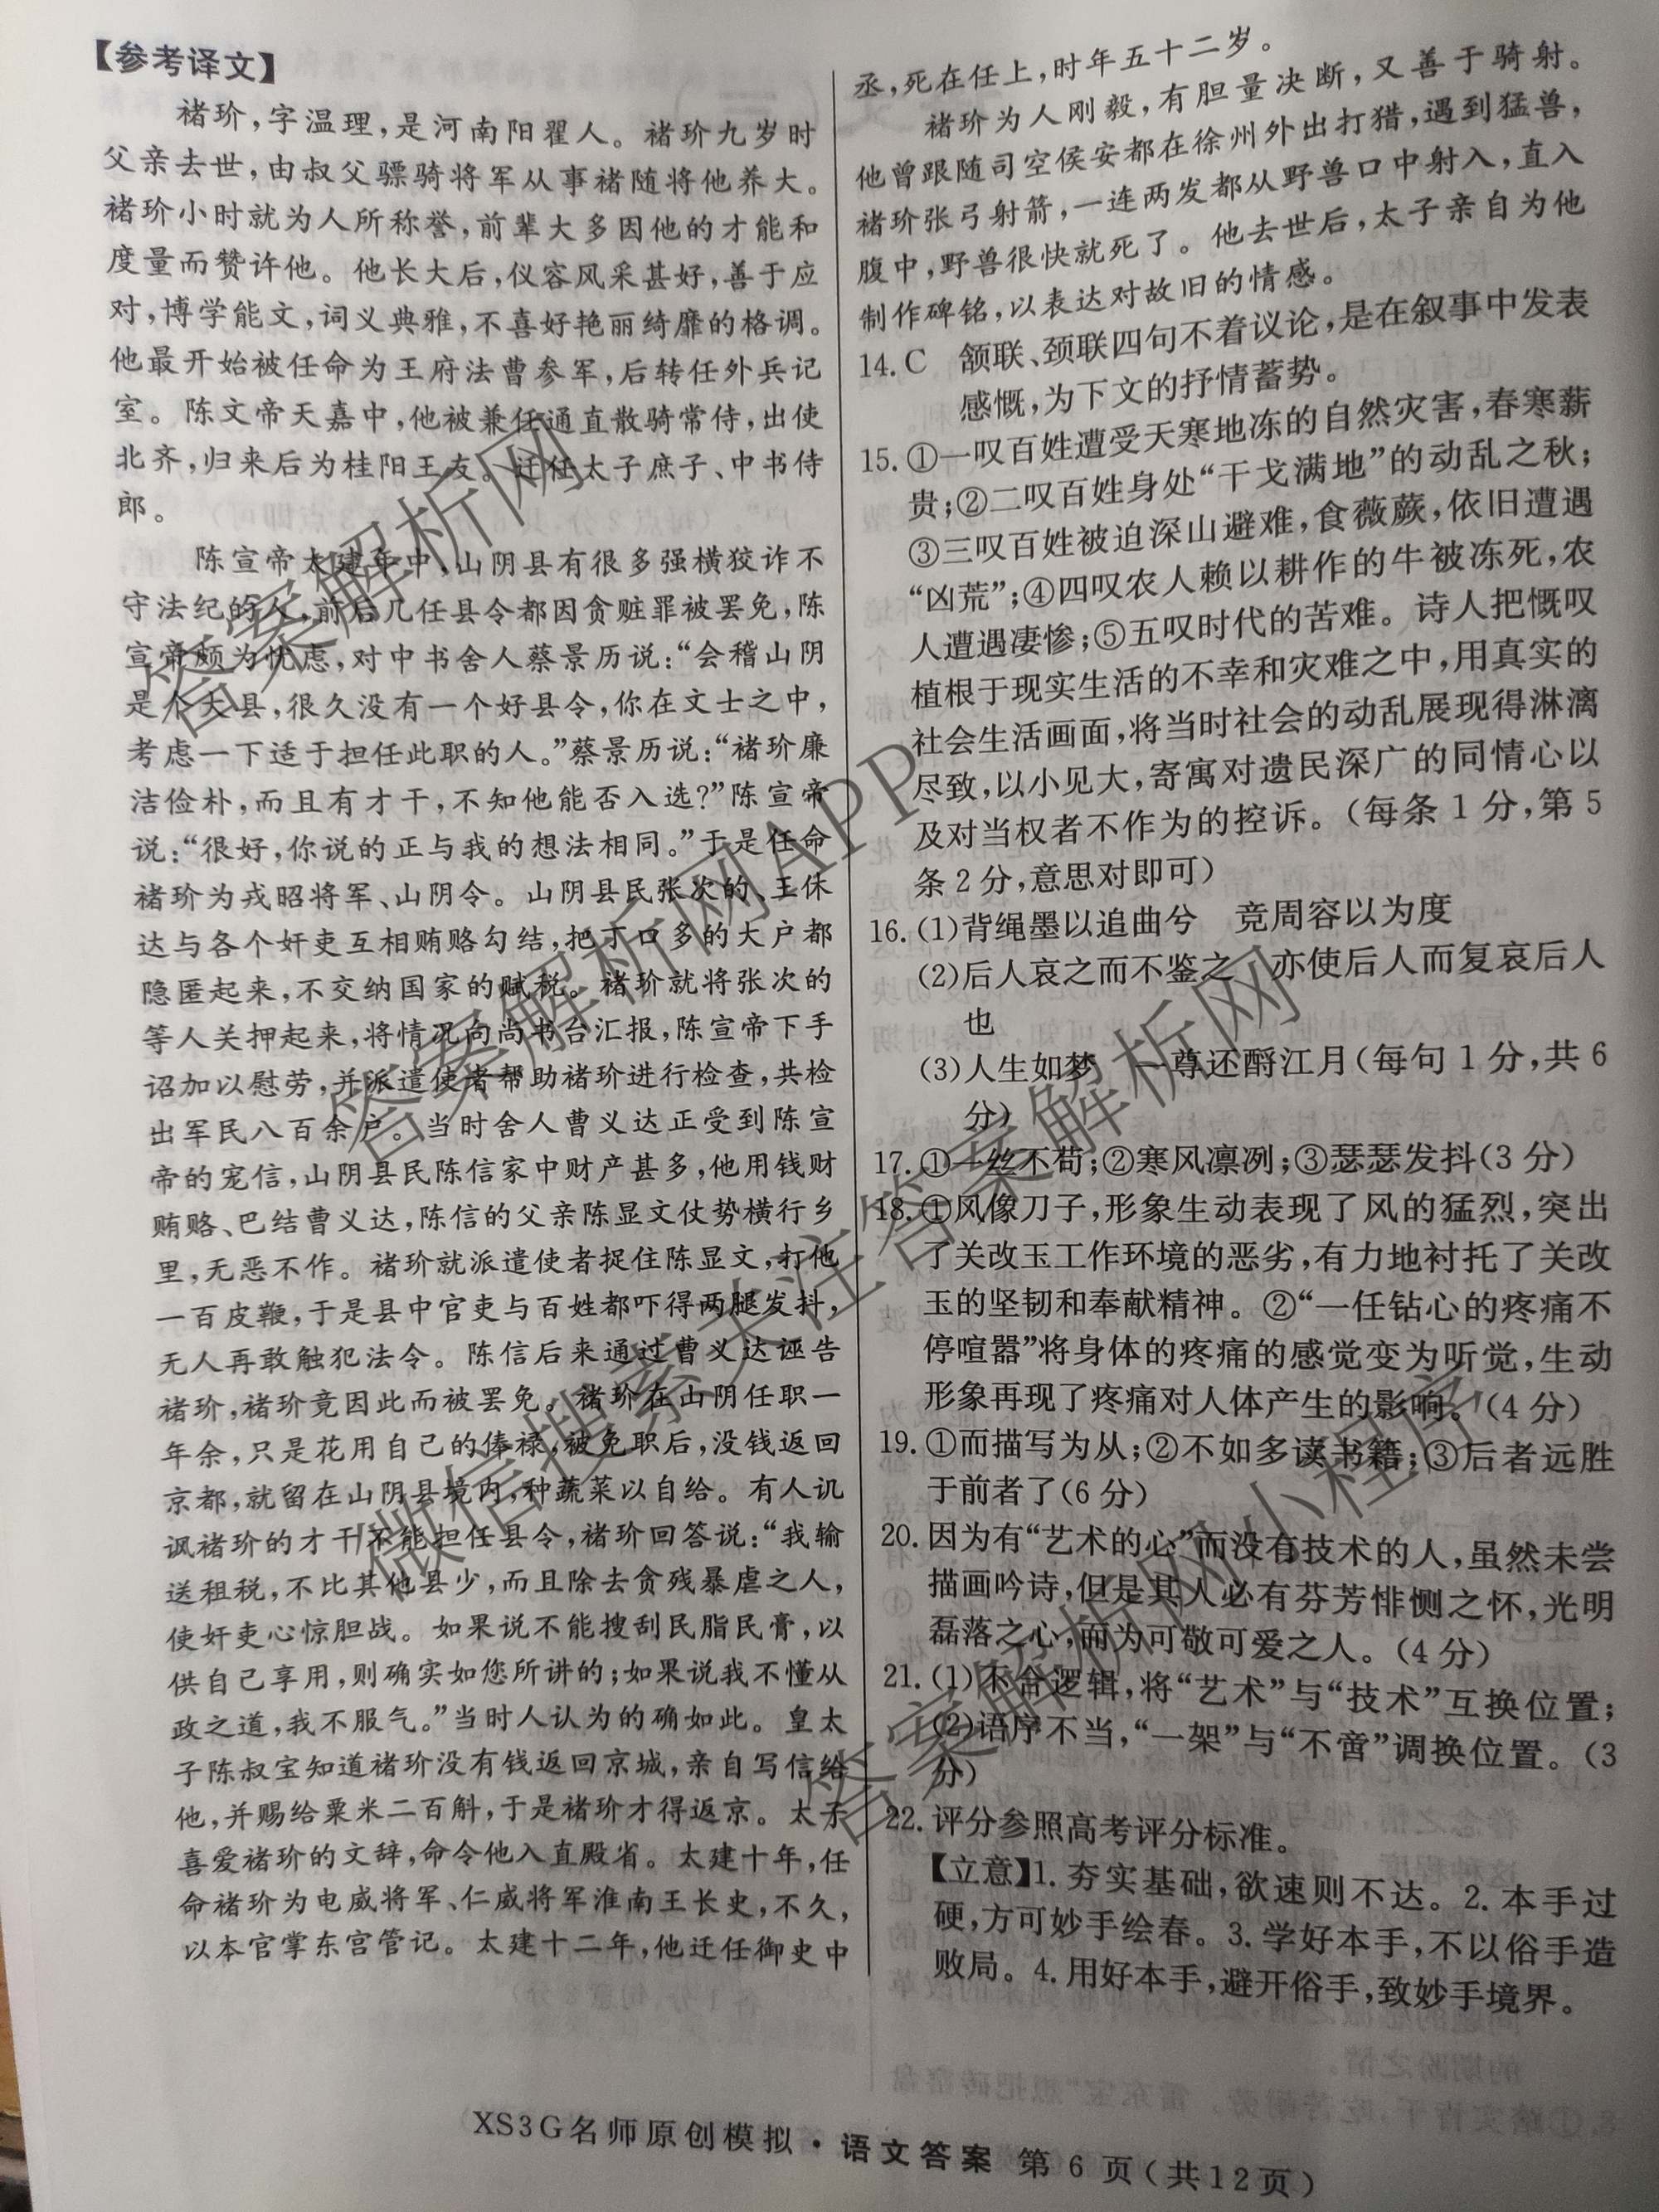 【参考译文】
褚玠，字温理，是河南阳翟人。褚玠九岁时
父亲去世，由叔父骠骑将军从事褚随将他养大。
褚玠小时就为人所称誉，前辈大多因他的才能和
度量而赞许他。他长大后，仪容风采甚好，善于应
对，博学能文，词义典雅，不喜好艳丽绮靡的格调。
他最开始被任命为王府法曹参军，后转任外兵记
室。陈文帝天嘉中，他被兼任通直散骑常侍，出使
北齐，归来后为桂阳王友。迁任太子庶子、中书侍
郎。
陈宣帝太建年中，山阴县有很多强横狡诈不
守法纪的人，前后几任县令都因贪赃罪被罢免，陈
宣帝颇为忧虑，对中书舍人蔡景历说：“会稽山阴
是个大县，很久没有一个好县令，你在文士之中，
考虑一下适于担任此职的人。”蔡景历说：“褚玠廉
洁俭朴，而且有才干，不知他能否入选？”陈宣帝
说：“很好，你说的正与我的想法相同。”于是任命
褚玠为戎昭将军、山阴令。山阴县民张次的、王休
达与各个奸吏互相贿赂勾结，把丁口多的大户都
隐匿起来，不交纳国家的赋税。褚玠就将张次的
等人关押起来，将情况向尚书台汇报，陈宣帝下手
诏加以慰劳，并派遣使者帮助褚玠进行检查，共检
出军民八百余户。当时舍人曹义达正受到陈宣
帝的宠信，山阴县民陈信家中财产甚多，他用钱财
贿赂、巴结曹义达，陈信的父亲陈显文仗势横行乡
里，无恶不作。褚玠就派遣使者捉住陈显文，打他
一百皮鞭，于是县中官吏与百姓都吓得两腿发抖，
无人再敢触犯法令。陈信后来通过曹义达诬告
褚玠，褚玠竟因此而被罢免。褚玠在山阴任职一
年余，只是花用自己的俸禄，被免职后，没钱返回
京都，就留在山阴县境内，种蔬菜以自给。有人讥
讽褚玠的才干不能担任县令，褚玠回答说：“我输
送租税，不比其他县少，而且除去贪残暴虐之人，
使奸吏心惊胆战。如果说不能搜刮民脂民膏，以
供自己享用，则确实如您所讲的；如果说我不懂从
政之道，我不服气。”当时人认为的确如此。皇太
子陈叔宝知道褚玠没有钱返回京城，亲自写信给
他，并赐给粟米二百斛，于是褚玠才得返京。太子
喜爱褚玠的文辞，命令他入直殿省。太建十年，任
命褚玠为电威将军、仁威将军淮南王长史，不久，
以本官掌东宫管记。太建十二年，他迁任御史中
丞，死在任上，时年五十二岁。
褚玠为人刚毅，有胆量决断，又善于骑射。
他曾跟随司空侯安都在徐州外出打猎，遇到猛兽，
褚玠张弓射箭，一连两发都从野兽口中射入，直入
腹中，野兽很快就死了。他去世后，太子亲自为他
制作碑铭，以表达对故旧的情感。
14. C 颔联、颈联四句不着议论，是在叙事中发表
感慨，为下文的抒情蓄势。
15. ①一叹百姓遭受天寒地冻的自然灾害，春寒薪
贵；②二叹百姓身处“干戈满地”的动乱之秋；
③三叹百姓被迫深山避难，食薇蕨，依旧遭遇
“凶荒”；④四叹农人赖以耕作的牛被冻死，农
人遭遇凄惨；⑤五叹时代的苦难。诗人把慨叹
植根于现实生活的不幸和灾难之中，用真实的
社会生活画面，将当时社会的动乱展现得淋漓
尽致，以小见大，寄寓对遗民深广的同情心以
及对当权者不作为的控诉。（每条 1 分，第 5
条 2 分，意思对即可）
16. (1)背绳墨以追曲兮 竞周容以为度
(2)后人哀之而不鉴之 亦使后人而复哀后人
也
(3)人生如梦 一尊还酹江月（每句 1 分，共 6
分）
17. ①一丝不苟；②寒风凛冽；③瑟瑟发抖（3 分）
18. ①风像刀子，形象生动表现了风的猛烈，突出
了关改玉工作环境的恶劣，有力地衬托了关改
玉的坚韧和奉献精神。②“一任钻心的疼痛不
停喧嚣”将身体的疼痛的感觉变为听觉，生动
形象再现了疼痛对人体产生的影响。（4 分）
19. ①而描写为从；②不如多读书籍；③后者远胜
于前者了（6 分）
20. 因为有“艺术的心”而没有技术的人，虽然未尝
描画吟诗，但是其人必有芬芳悱恻之怀，光明
磊落之心，而为可敬可爱之人。（4 分）
21. (1)不合逻辑，将“艺术”与“技术”互换位置；
(2)语序不当，“一架”与“不啻”调换位置。（3
分）
22. 评分参照高考评分标准。
【立意】1. 夯实基础，欲速则不达。2. 本手过
硬，方可妙手绘春。3. 学好本手，不以俗手造
败局。4. 用好本手，避开俗手，致妙手境界。
XS3G名师原创模拟·语文答案 第 6 页（共12页）
答案解析网
答案解析网APP
微信搜索关注答案解析网
答案解析网小程序